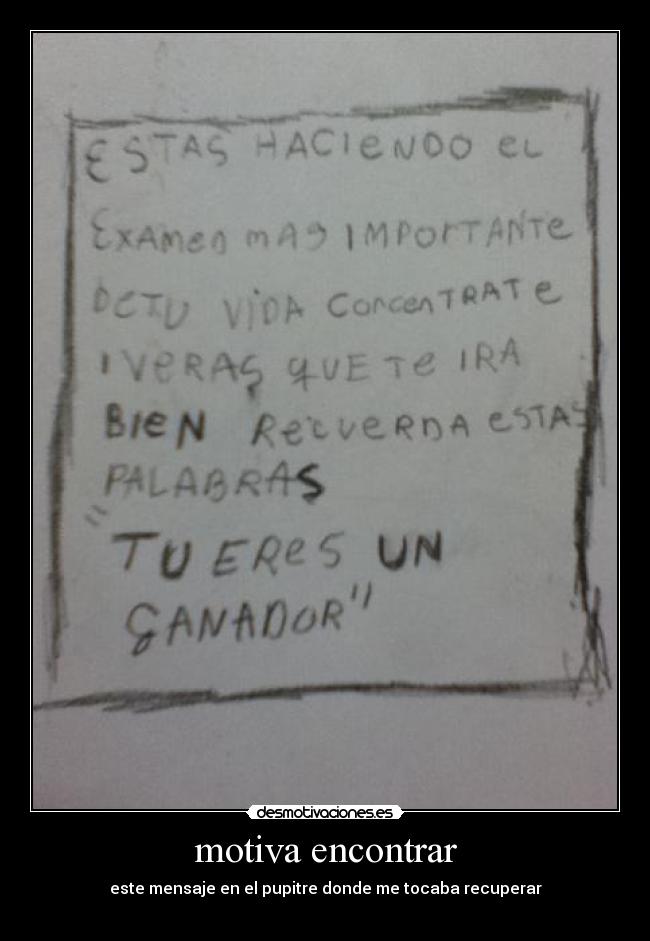 ESTAS HACIENDO EL
EXAMEN MAS IMPORTANTE
DETU VIDA CONCENTRATE
I VERAS QUE TE IRA
BIEN RECUERDA ESTAS
PALABRAS
"TU ERES UN
GANADOR"
desmotivaciones.es
motiva encontrar
este mensaje en el pupitre donde me tocaba recuperar